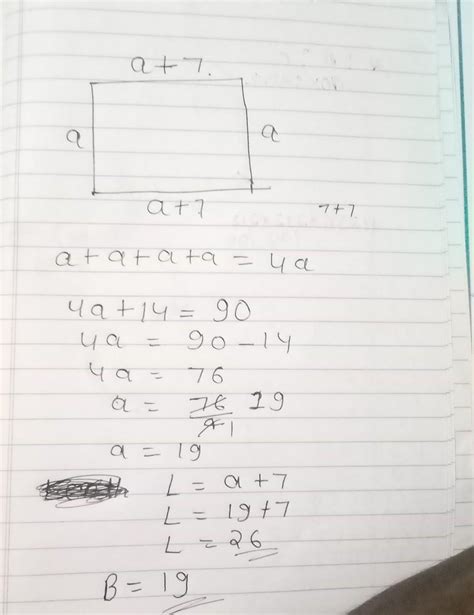 a+7.
a a
a+7
7+7
a+a+a+a = 4a
4a+14 = 90
4a = 90-14
4a = 76
a = 76/4 19
1
a = 19
L = a+7
L = 19+7
L = 26
B = 19